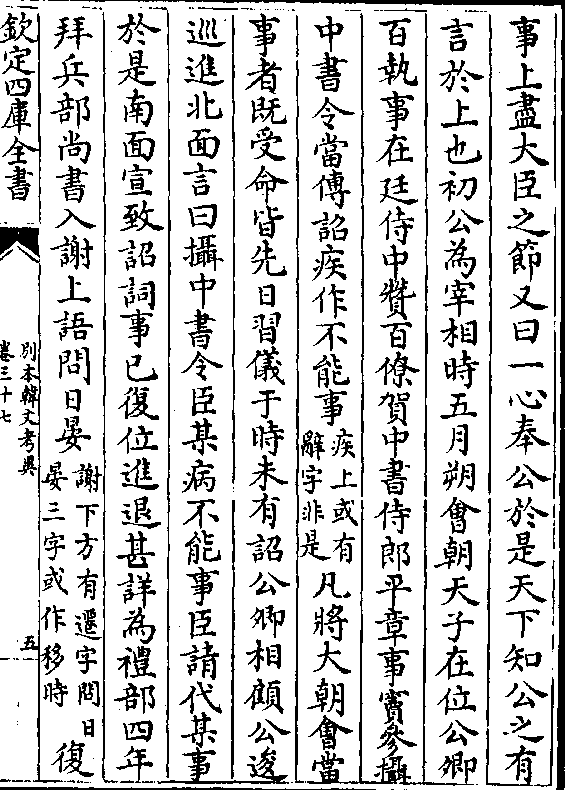 事上盡大臣之節又曰一心奉公於是天下知公之有
言於上也初公為宰相時五月朔會朝天子在位公卿
百執事在廷侍中贊百僚賀中書侍郎平章事竇參攝
中書令當傳詔疾作不能事疾上或有辭字非是凡將大朝會當
事者既受命皆先日習儀于時未有詔公卿相顧公逡
巡進北面言曰攝中書令臣某病不能事臣請代某事
於是南面宣致詔詞事已復位進退甚詳為禮部四年
拜兵部尚書入謝上語問日晏謝下方有遷字問日晏三字或作移時復
欽定四庫全書
別本韓文考異
卷三十七
五